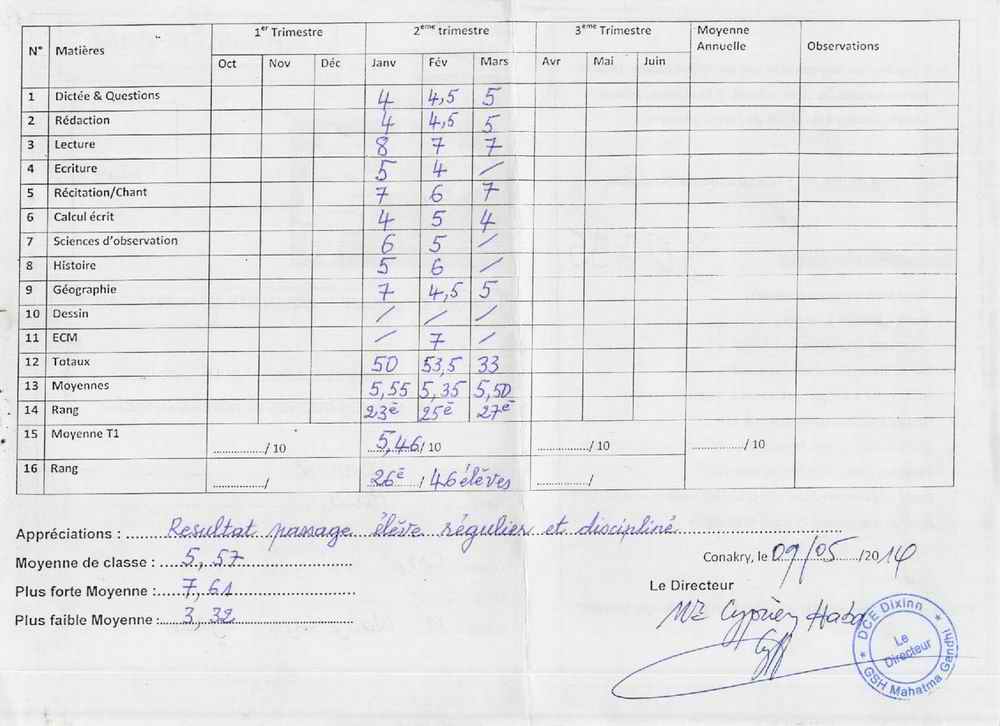 N° Matières 1er Trimestre 2ème trimestre 3ème Trimestre Moyenne Annuelle Observations
Oct Nov Déc Janv Fév Mars Avr Mai Juin
1 Dictée & Questions 4 4,5 5
2 Rédaction 4 4,5 5
3 Lecture 8 7 7
4 Ecriture 5 4 /
5 Récitation/Chant 7 6 7
6 Calcul écrit 4 5 4
7 Sciences d'observation 6 5 /
8 Histoire 5 6 /
9 Géographie 7 4,5 5
10 Dessin / / /
11 ECM / 7 /
12 Totaux 50 53,5 33
13 Moyennes 5,55 5,35 5,50
14 Rang 23è 25è 27è
15 Moyenne T1 ............../ 10 5,46/ 10 ............../ 10 ............../ 10
16 Rang ............../ 26è / 46 élèves ............../
Appréciations : Resultat passage élève régulier et discipliné
Moyenne de classe : 5,57
Plus forte Moyenne : 7,61
Plus faible Moyenne : 3,32
Conakry, le 09/05/2014
Le Directeur
Mr Cyprien Haba
DCE Dixinn
Le Directeur
GSH Mahatma Gandhi